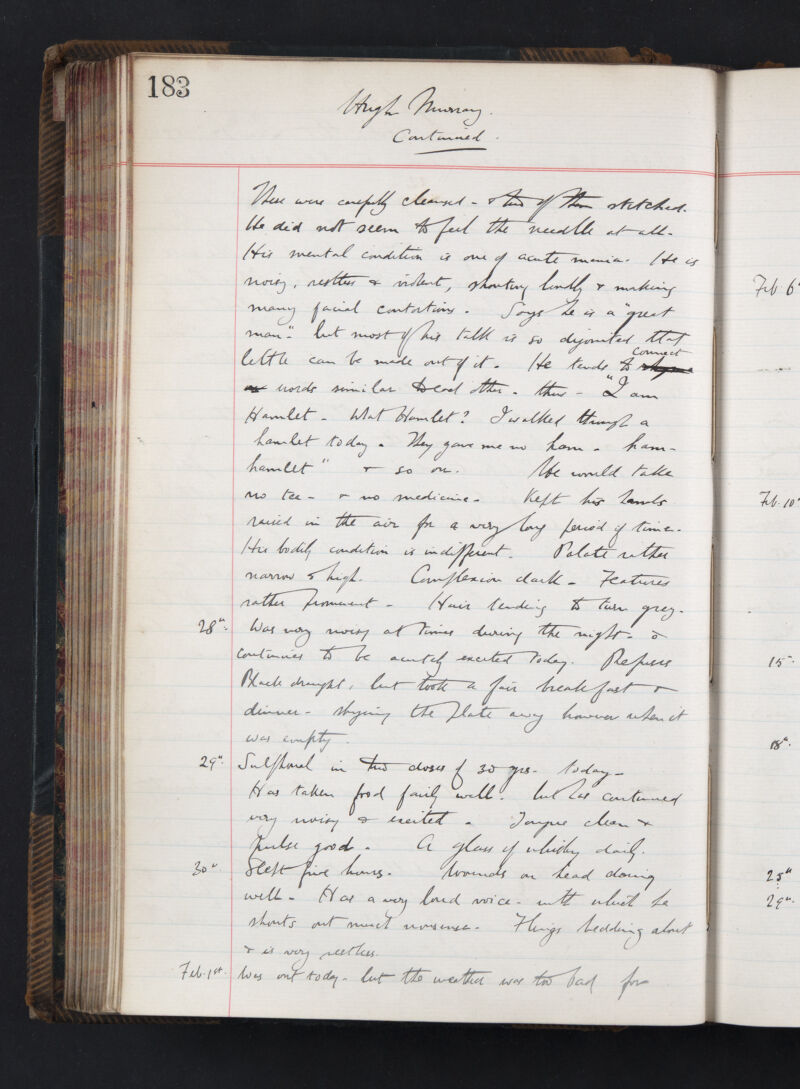 183
Hugh Murray.
Continued.
These were carefully cleansed - & two of them stitched.
He did not seem to feel the needle at all.
His mental condition is one of acute mania. He is
noisy, restless & violent, shouting loudly & making
many facial contortions. Says he is a "great
man" - but most of his talk is so disjointed that
little can be made out of it. He tends to connect
words similar to each other - thus - "I am
Hamlet - What Hamlet? I walked through a
hamlet today. They gave me no ham - ham-
hamlet" & so on. He would take
no tea - & no medicine. Kept his hands
raised in the air for a very long period of time.
His bodily condition is indifferent. Palate rather
narrow & high. Complexion dark - Features
rather prominent - Hair tending to turn grey.
28th. Was very noisy at times during the night - &
continues to be acutely excited today. Refuses
Black draught, but took a fair breakfast &
dinner - shying the plate away however when it
was empty.
29th. Sulphonal in two doses of 30 grs. today -
Has taken food fairly well - but has continued
very noisy & excited - Tongue clean &
pulse good. A glass of whisky daily.
30th Slept five hours. Wounds on head doing
well - Has a very loud voice - with which he
shouts out much nonsense. Flings bedding about
& is very restless.
Feb. 1st. Was out today - but the weather was too bad for
Feb 6
Feb. 10
15.
18th.
25th
29th.